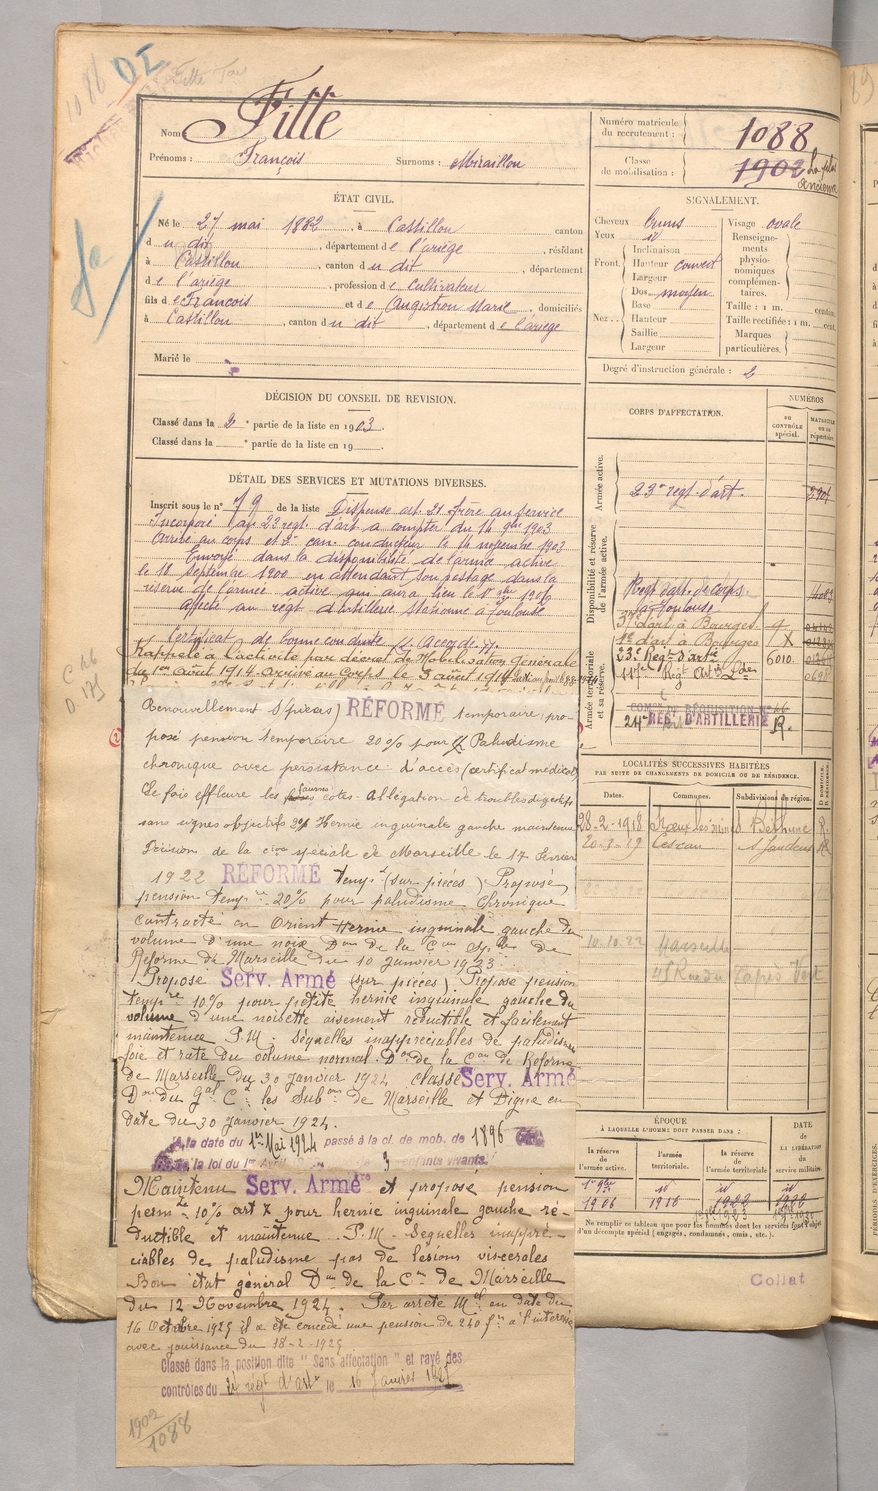 1086 DI
Fille
Nom Fille
Prénoms : François Surnoms : Miraillou
ÉTAT CIVIL.
Né le 27 mai 1882, à Castillon canton
du dit, département de l'ariège, résidant
à Castillon, canton du dit, département
de l'ariège, profession de cultivateur
fils de François et de Augistron Marie, domiciliés
à Castillon, canton du dit, département de l'ariège
Marié le
DÉCISION DU CONSEIL DE REVISION.
Classé dans la 2e partie de la liste en 1903
Classé dans la e partie de la liste en 19
DÉTAIL DES SERVICES ET MUTATIONS DIVERSES.
Inscrit sous le n° 79 de la liste Dispense art. 21 frère au service
Incorporé au 23 regt d'art à compter du 14 9bre 1903
Arrivé au corps et 2e can. conducteur le 14 novembre 1903
Envoyé dans la disponibilité de l'armée active
le 18 septembre 1900 en attendant son passage dans la
réserve de l'armée active qui aura lieu le 1er 9bre 1906
affecté au regt d'artillerie stationné à Toulouse
Certificat de bonne conduite "Accordé".
Rappelé à l'activité par décret de Mobilisation générale
du 1er Août 1914. Arrivé au Corps le 3 août 1914
Renouvellement (pièces) RÉFORMÉ temporaire, pro-
posé pension temporaire 20% pour Paludisme
chronique avec persistance d'accès (certificat médical)
Le foie effleure les fausses côtes. Allégation de troubles digestifs
sans signes objectifs 2° Hernie inguinale gauche maintenue
Décision de la cion spéciale de Marseille le 17 Février
1922 RÉFORMÉ tempre (sur pièces) Proposé
pension tempre 20% pour paludisme chronique
contracté en Orient Hernie inguinale gauche du
volume d'une noix Don de la Con Sple de
Réforme de Marseille du 10 Janvier 1923.
Proposé Serv. Armé (sur pièces) Propose pension
tempre 10% pour petite hernie inguinale gauche du
volume d'une noisette aisément réductible et facilement
maintenue P.M. Séquelles inappréciables de paludisme
foie et rate du volume normal. Don de la Con de Réforme
de Marseille du 30 Janvier 1924 classé Serv. Armé
Don du Gal Ct les Subons de Marseille et Digne en
date du 30 Janvier 1924.
A la date du 1er Mai 1924 passé à la cl. de mob. de 1896
la loi du 1er Avril 3 enfants vivants.
Maintenu Serv. Armé et proposé pension
perm. 10% art 7 pour hernie inguinale gauche ré-
ductible et maintenue P.M. Séquelles inappré-
ciables de paludisme pas de lésions viscérales
Bon état général Don de la Con de Marseille
du 12 Novembre 1924. Par arrêté Mel en date du
16 Octobre 1925 il a été concédé une pension de 240 f à l'intéressé
avec jouissance du 18-2-1925
Classé dans la position dite "Sans affectation" et rayé des
contrôles du regt d'art le 16 Janvier
1902
1088
Numéro matricule du recrutement : 1088
Classe de mobilisation : 1902 La plus ancienne
SIGNALEMENT.
Cheveux bruns
Yeux id
Front. Inclinaison
Hauteur couvert
Largeur
Nez Dos moyen
Base
Hauteur
Saillie
Largeur
Visage ovale
Renseignements physionomiques complémentaires.
Taille : 1 m. centim.
Taille rectifiée : 1 m. cent.
Marques particulières.
Degré d'instruction générale : 2
CORPS D'AFFECTATION.
NUMÉROS
au contrôle spécial.
matricule ou au répertoire.
Armée active.
23e regt d'art.
Disponibilité et réserve de l'armée active.
Regt d'art. de corps
Toulouse
37e d'art à Bourges 9
1er d'art à Bourges X
23e Regt d'art 6010
Armée territoriale et sa réserve.
117e Regt Artie Lde
COMon DE RÉQUISITION N° 46
24e REG. D'ARTILLERIE R.
LOCALITÉS SUCCESSIVES HABITÉES
PAR SUITE DE CHANGEMENTS DE DOMICILE OU DE RÉSIDENCE.
Dates. Communes. Subdivisions de région. D. DOMICILE. R. RÉSIDENCE.
28-2-1918 Nœux les mines Béthune R.
20-3-19 Lescau St Gaudens R
10.10.22 Marseille
45 Rue du Tapis Vert
ÉPOQUE
À LAQUELLE L'HOMME DOIT PASSER DANS :
la réserve de l'armée active. l'armée territoriale. la réserve de l'armée territoriale
DATE de LA LIBÉRATION du service militaire.
1er 9bre id id id
1906 1916 1922 1928
Ne remplir ce tableau que pour les hommes dont les services font l'objet
d'un décompte spécial (engagés, condamnés, omis, etc.).
Collat